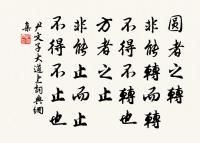 圆者之轉
非能轉而轉
不得不轉也
方者之止
非能止而止
不得不止也
尹文子大道上詞典網
集